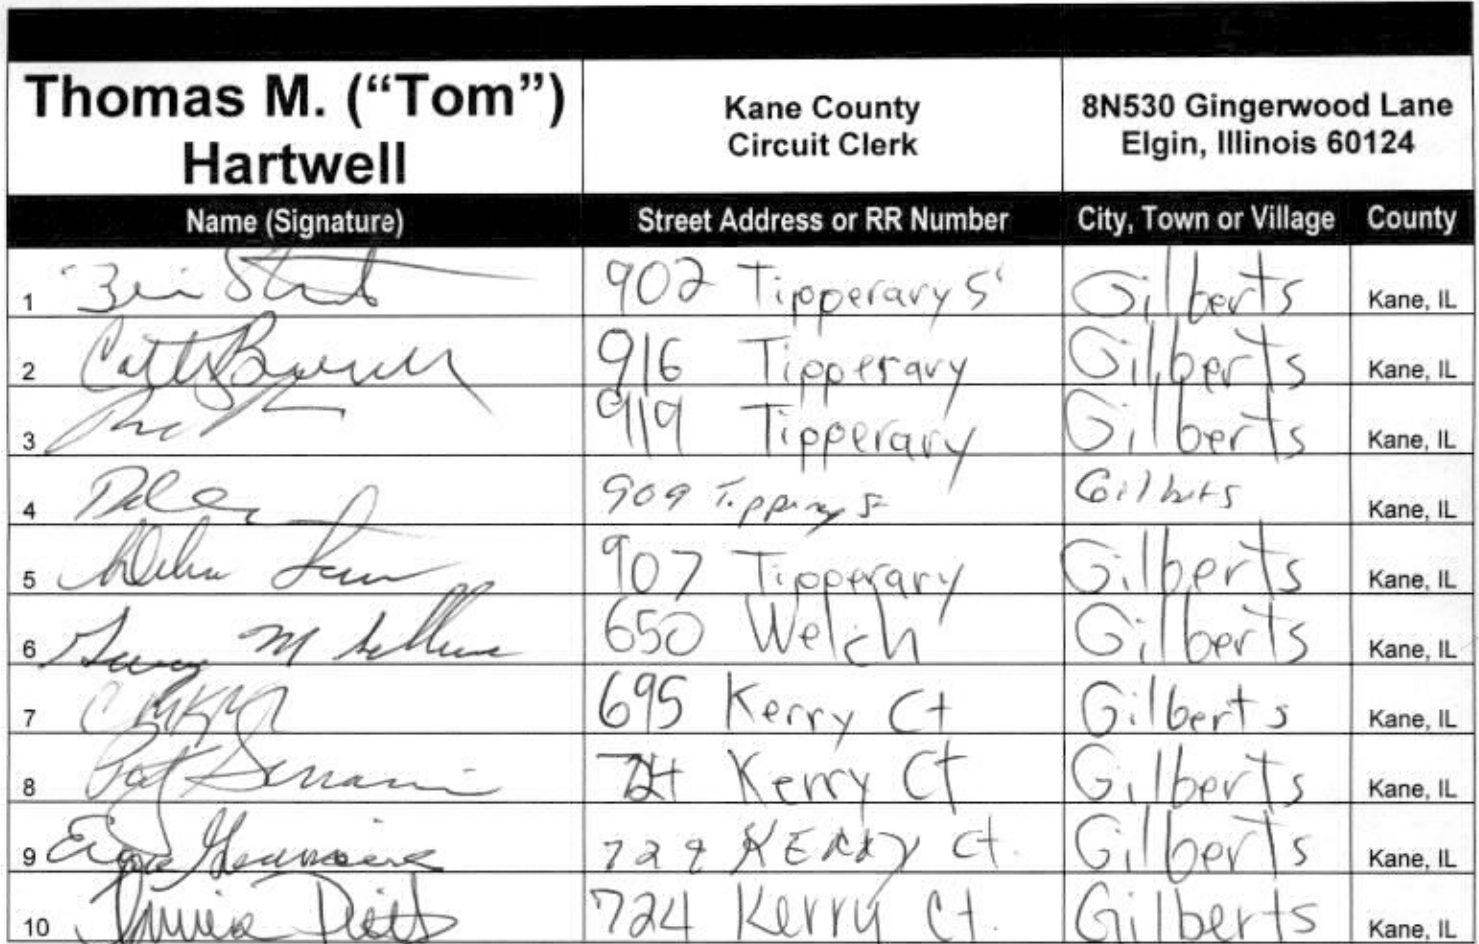 Thomas M. ("Tom") Hartwell
Kane County Circuit Clerk
8N530 Gingerwood Lane
Elgin, Illinois 60124
Name (Signature) Street Address or RR Number City, Town or Village County
1 902 Tipperary S Gilberts Kane, IL
2 916 Tipperary Gilberts Kane, IL
3 919 Tipperary Gilberts Kane, IL
4 909 Gilberts Kane, IL
5 907 Tipperary Gilberts Kane, IL
6 M 650 Welch Gilberts Kane, IL
7 695 Kerry Ct Gilberts Kane, IL
8 Pat 724 Kerry Ct Gilberts Kane, IL
9 Kerry Ct. Gilberts Kane, IL
10 724 Kerry Ct. Gilberts Kane, IL